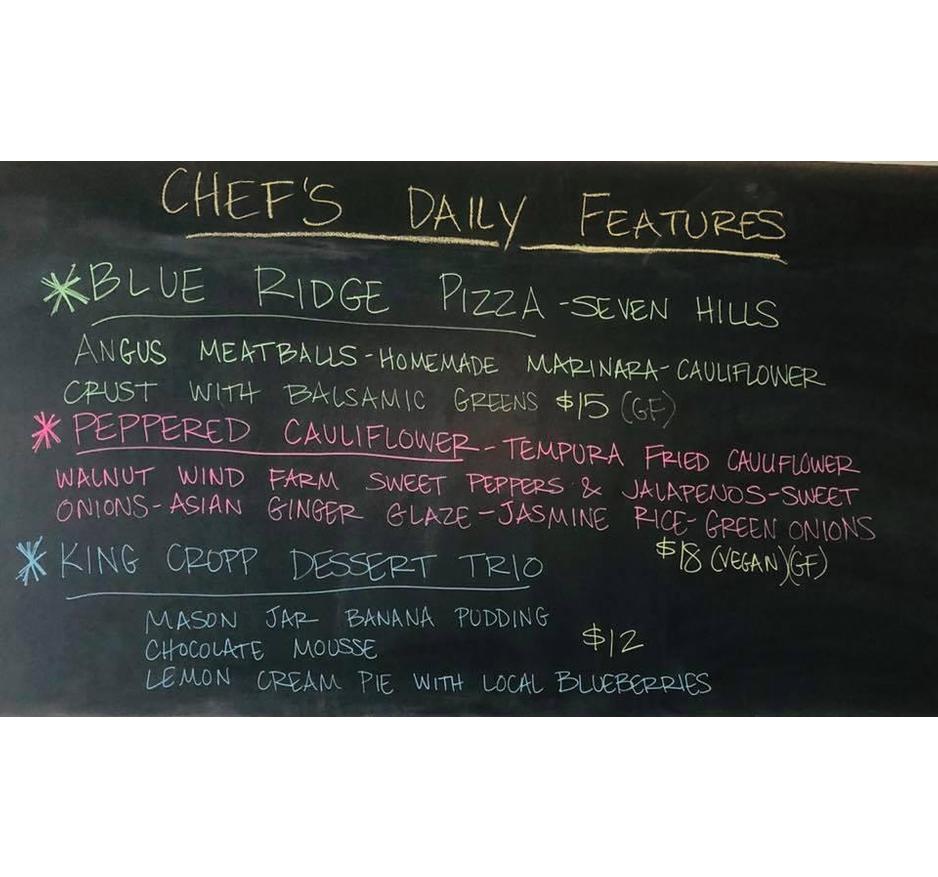 CHEF'S DAILY FEATURES
*BLUE RIDGE PIZZA - SEVEN HILLS
ANGUS MEATBALLS - HOMEMADE MARINARA - CAULIFLOWER
CRUST WITH BALSAMIC GREENS $15 (GF)
* PEPPERED CAULIFLOWER - TEMPURA FRIED CAULIFLOWER
WALNUT WIND FARM SWEET PEPPERS & JALAPENOS - SWEET
ONIONS - ASIAN GINGER GLAZE - JASMINE RICE - GREEN ONIONS
$18 (VEGAN)(GF)
* KING CROPP DESSERT TRIO
MASON JAR BANANA PUDDING
CHOCOLATE MOUSSE $12
LEMON CREAM PIE WITH LOCAL BLUEBERRIES